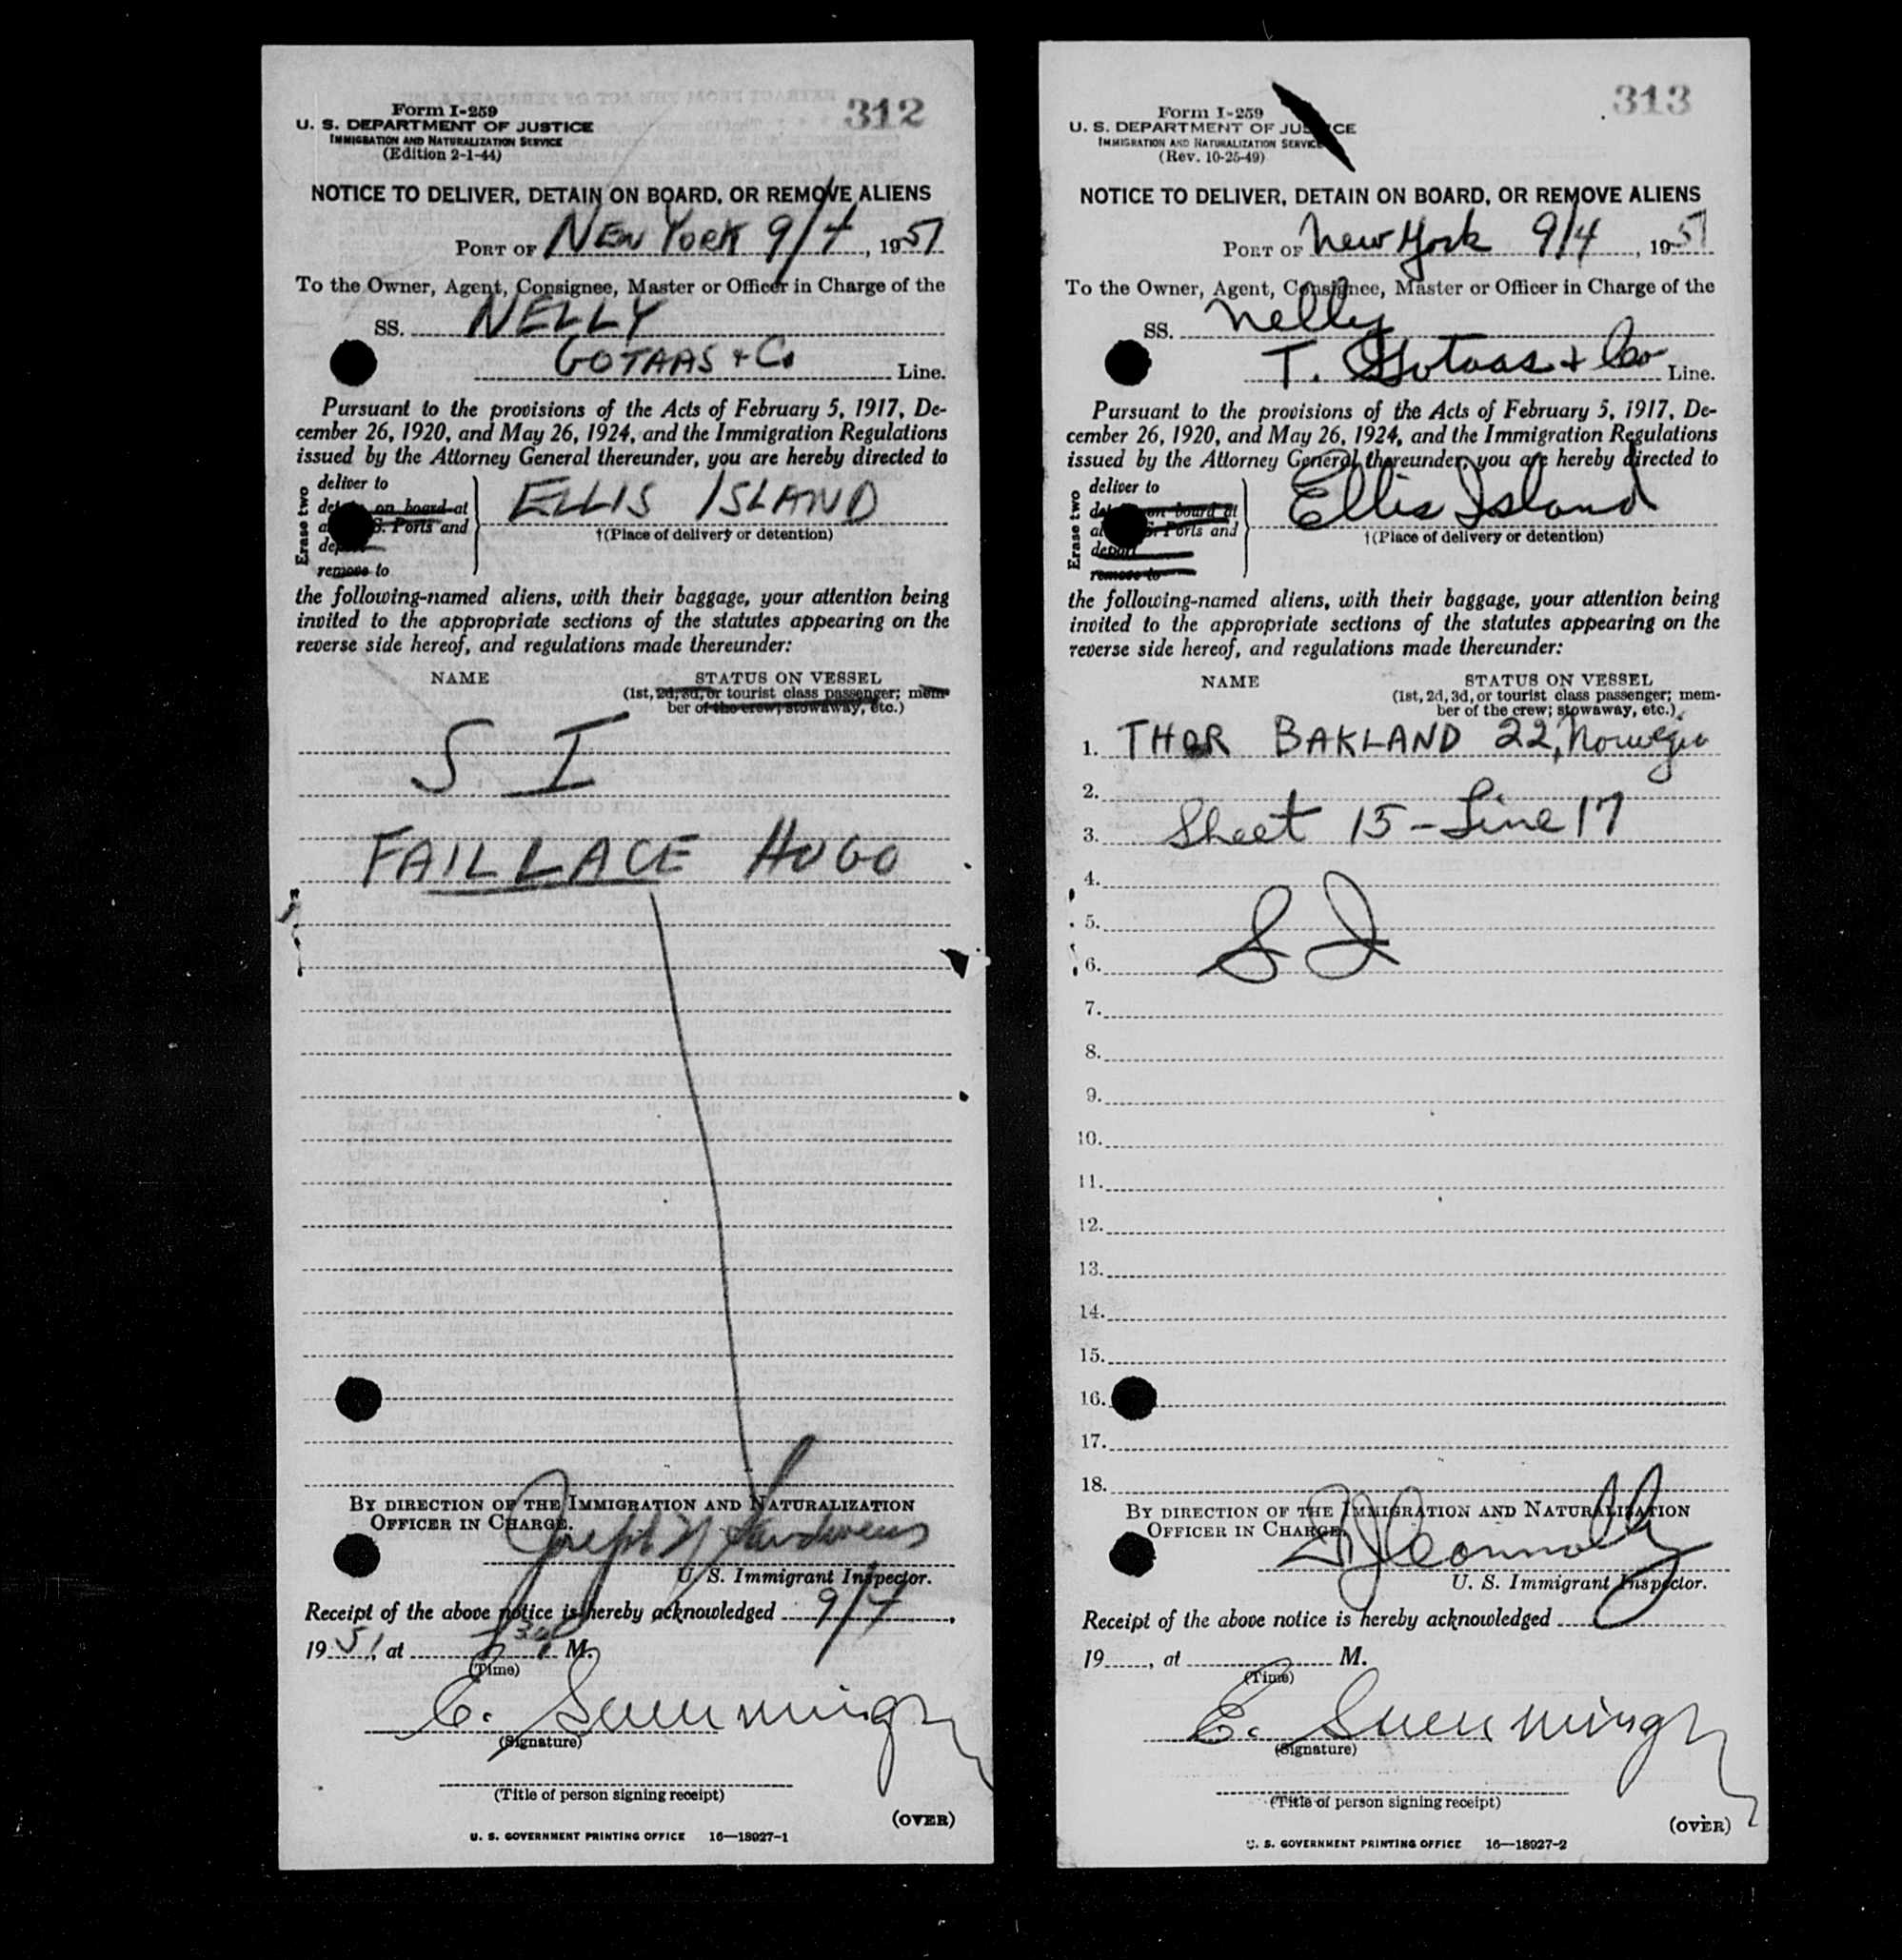 312
Form I-259
U. S. DEPARTMENT OF JUSTICE
IMMIGRATION AND NATURALIZATION SERVICE
(Edition 2-1-44)
NOTICE TO DELIVER, DETAIN ON BOARD, OR REMOVE ALIENS
PORT OF NEW YORK 9/4, 1951
To the Owner, Agent, Consignee, Master or Officer in Charge of the
SS. NELLY
GOTAAS + Co Line.
Pursuant to the provisions of the Acts of February 5, 1917, De-
cember 26, 1920, and May 26, 1924, and the Immigration Regulations
issued by the Attorney General thereunder, you are hereby directed to
Erase two
deliver to
on board at
S. Ports and
remove to
ELLIS ISLAND
†(Place of delivery or detention)
the following-named aliens, with their baggage, your attention being
invited to the appropriate sections of the statutes appearing on the
reverse side hereof, and regulations made thereunder:
NAME STATUS ON VESSEL
(1st, 2d, 3d, or tourist class passenger; mem-
ber of the crew; stowaway, etc.)
S I
FAILLACE HUGO
BY DIRECTION OF THE IMMIGRATION AND NATURALIZATION
OFFICER IN CHARGE.
Joseph
U. S. Immigrant Inspector.
Receipt of the above notice is hereby acknowledged 9/4,
1951, at M.
(Time)
E.
(Signature)
(Title of person signing receipt)
(OVER)
U. S. GOVERNMENT PRINTING OFFICE 16—18927-1
313
Form I-259
U. S. DEPARTMENT OF JUSTICE
IMMIGRATION AND NATURALIZATION SERVICE
(Rev. 10-25-49)
NOTICE TO DELIVER, DETAIN ON BOARD, OR REMOVE ALIENS
PORT OF New York 9/4, 1951
To the Owner, Agent, Consignee, Master or Officer in Charge of the
SS. Nelly
T. Gotaas + Co Line.
Pursuant to the provisions of the Acts of February 5, 1917, De-
cember 26, 1920, and May 26, 1924, and the Immigration Regulations
issued by the Attorney General thereunder, you are hereby directed to
Erase two
deliver to
on board at
S. Ports and
deport
remove to
Ellis Island
†(Place of delivery or detention)
the following-named aliens, with their baggage, your attention being
invited to the appropriate sections of the statutes appearing on the
reverse side hereof, and regulations made thereunder:
NAME STATUS ON VESSEL
(1st, 2d, 3d, or tourist class passenger; mem-
ber of the crew; stowaway, etc.)
1. THOR BAKLAND 22, Norwegia
2.
3. Sheet 15 - Line 17
4.
5.
6. S I
7.
8.
9.
10.
11.
12.
13.
14.
15.
16.
17.
18.
BY DIRECTION OF THE IMMIGRATION AND NATURALIZATION
OFFICER IN CHARGE.
Connolly
U. S. Immigrant Inspector.
Receipt of the above notice is hereby acknowledged
19, at M.
(Time)
E.
(Signature)
(Title of person signing receipt)
(OVER)
U. S. GOVERNMENT PRINTING OFFICE 16—18927-2